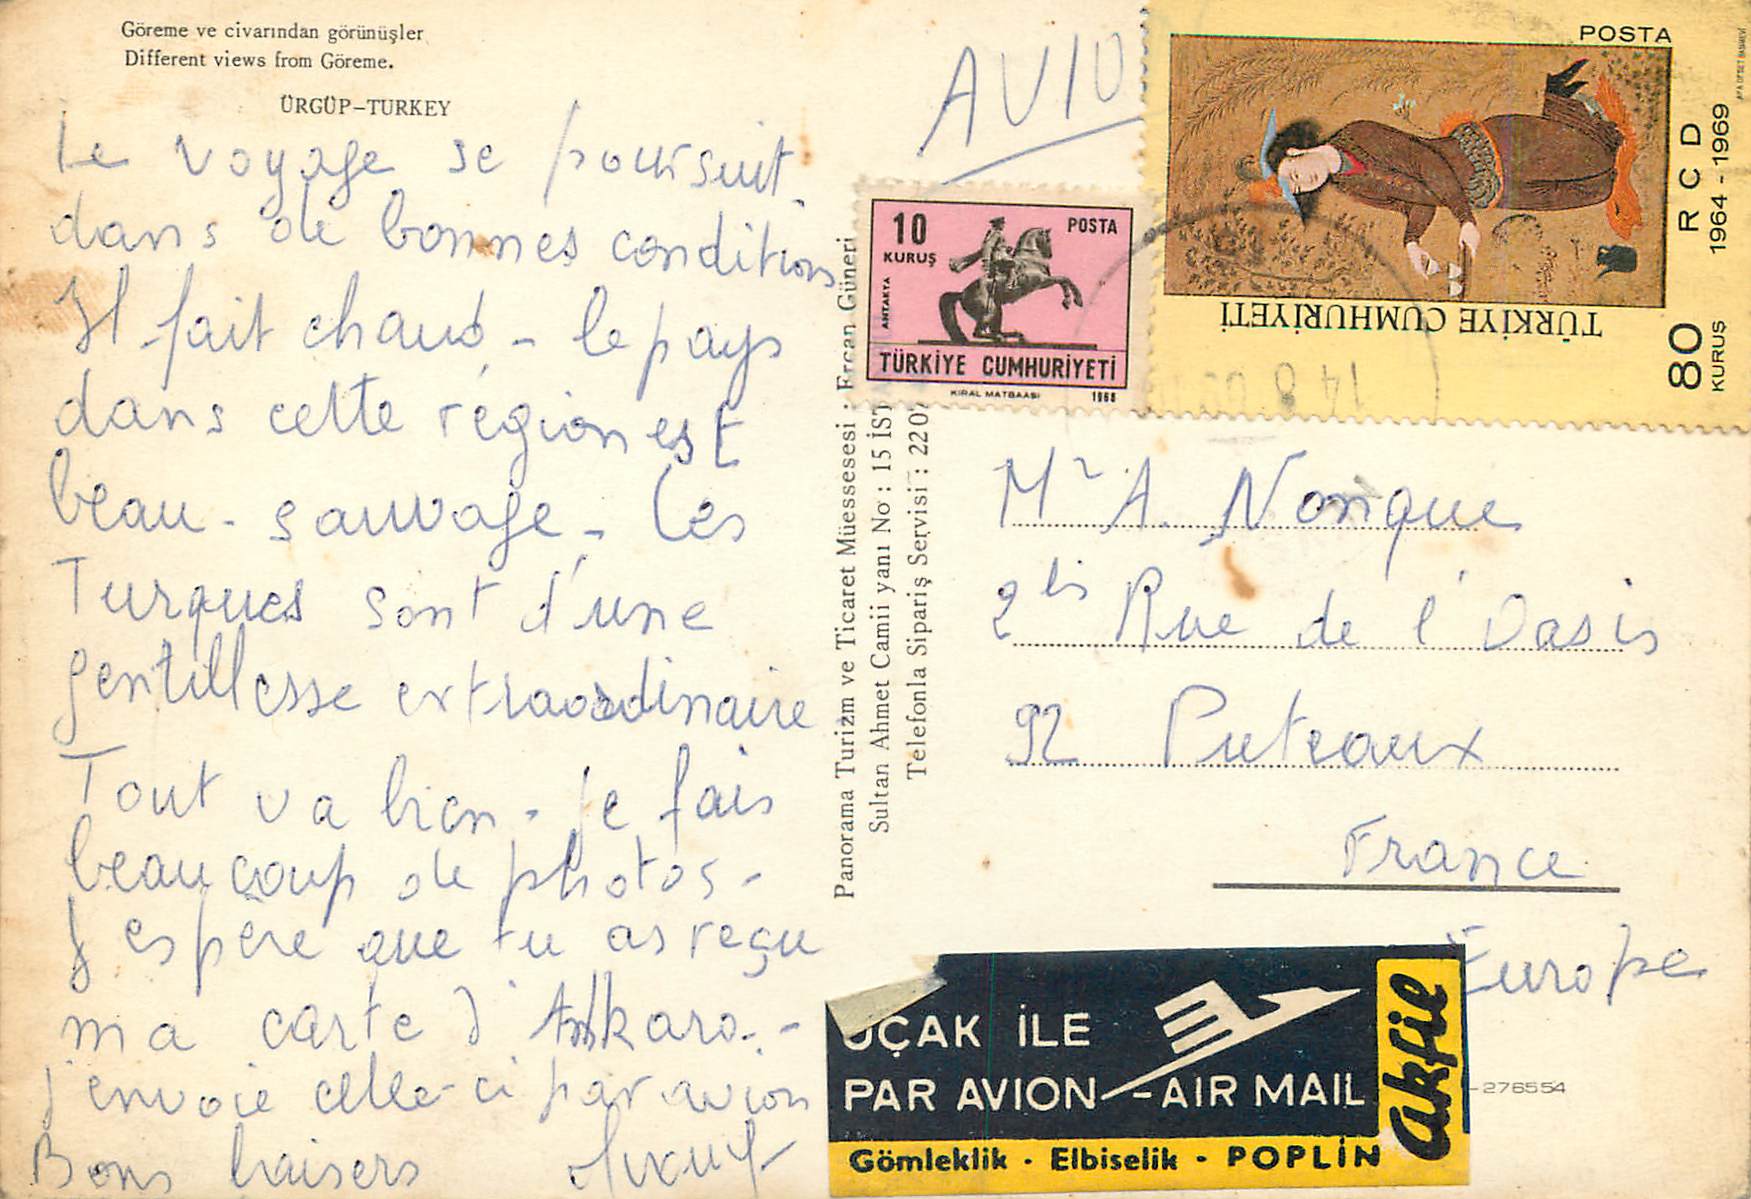 Göreme ve civarından görünüşler
Different views from Göreme.
ÜRGÜP-TURKEY
Le voyage se poursuit
dans de bonnes conditions
Il fait chaud - le pays
dans cette région est
beau - sauvage - Les
Turques sont d'une
gentillesse extraordinaire
Tout va bien - je fais
beaucoup de photos -
J'espère que tu as reçu
ma carte d'Ankara -
j'envoie celle-ci par avion
Bons baisers
Panorama Turizm ve Ticaret Müessesesi . Ercan Güneri
Sultan Ahmet Camii yanı No : 15 İST
Telefonla Sipariş Servisi : 220
AVIO
10
KURUŞ
POSTA
ANTAKYA
TÜRKİYE CUMHURİYETİ
KIRAL MATBAASI 1968
POSTA
TÜRKİYE CUMHURİYETİ
RCD
1964-1969
80
KURUŞ
14 8
Mr A. Nonque
2bis Rue de l'Oasis
92 Puteaux
France
Europe
UÇAK İLE
PAR AVION - AIR MAIL
akfil
Gömleklik · Elbiselik - POPLİN
-276554